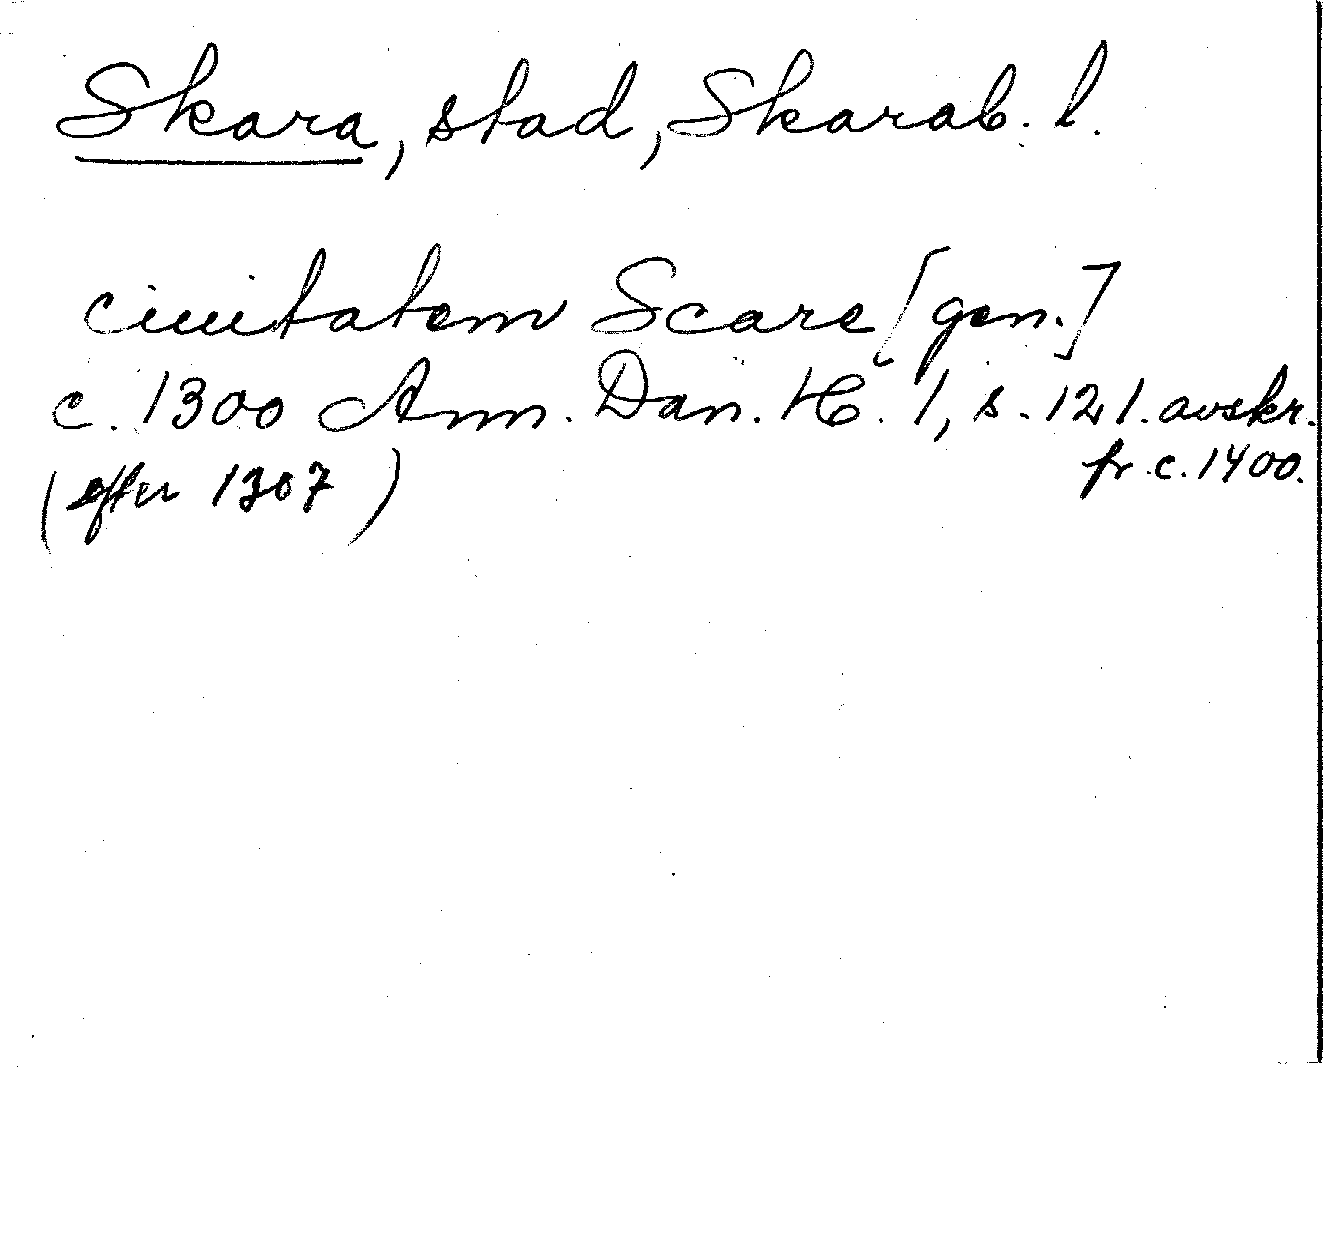 Skara, stad, Skarab. l.
ciuitatem Scare [gen.]
c. 1300 Ann. Dan. H. 1, s. 121. avskr.
fr. c. 1400.
(efter 1307)